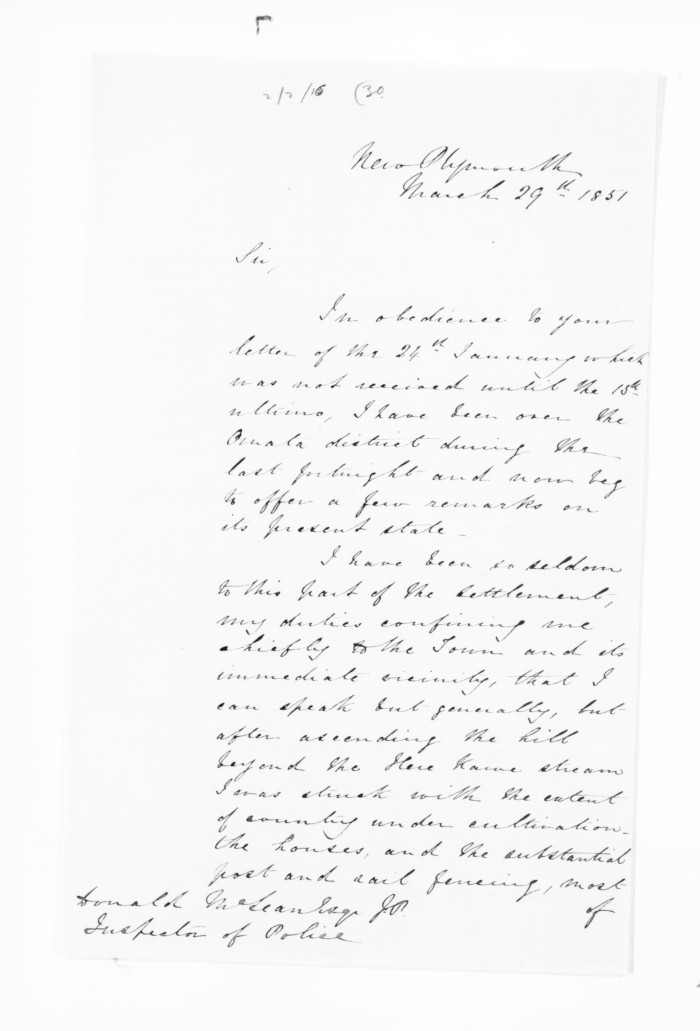 2/2/16 (30.
New Plymouth
March 29th 1851
Sir,
In obedience to your
letter of the 24th January which
was not received until the 15th
ultimo, I have been over the
Omata district during the
last fortnight and now beg
to offer a few remarks on
its present state -
I have been so seldom
to this part of the settlement,
my duties confining me
chiefly to the Town and its
immediate vicinity, that I
can speak but generally, but
after ascending the hill
beyond the Here Kawe stream
I was struck with the extent
of country under cultivation -
the houses, and the substantial
post and rail fencing, most
of
Donald McLean Esqr J.P.
Inspector of Police